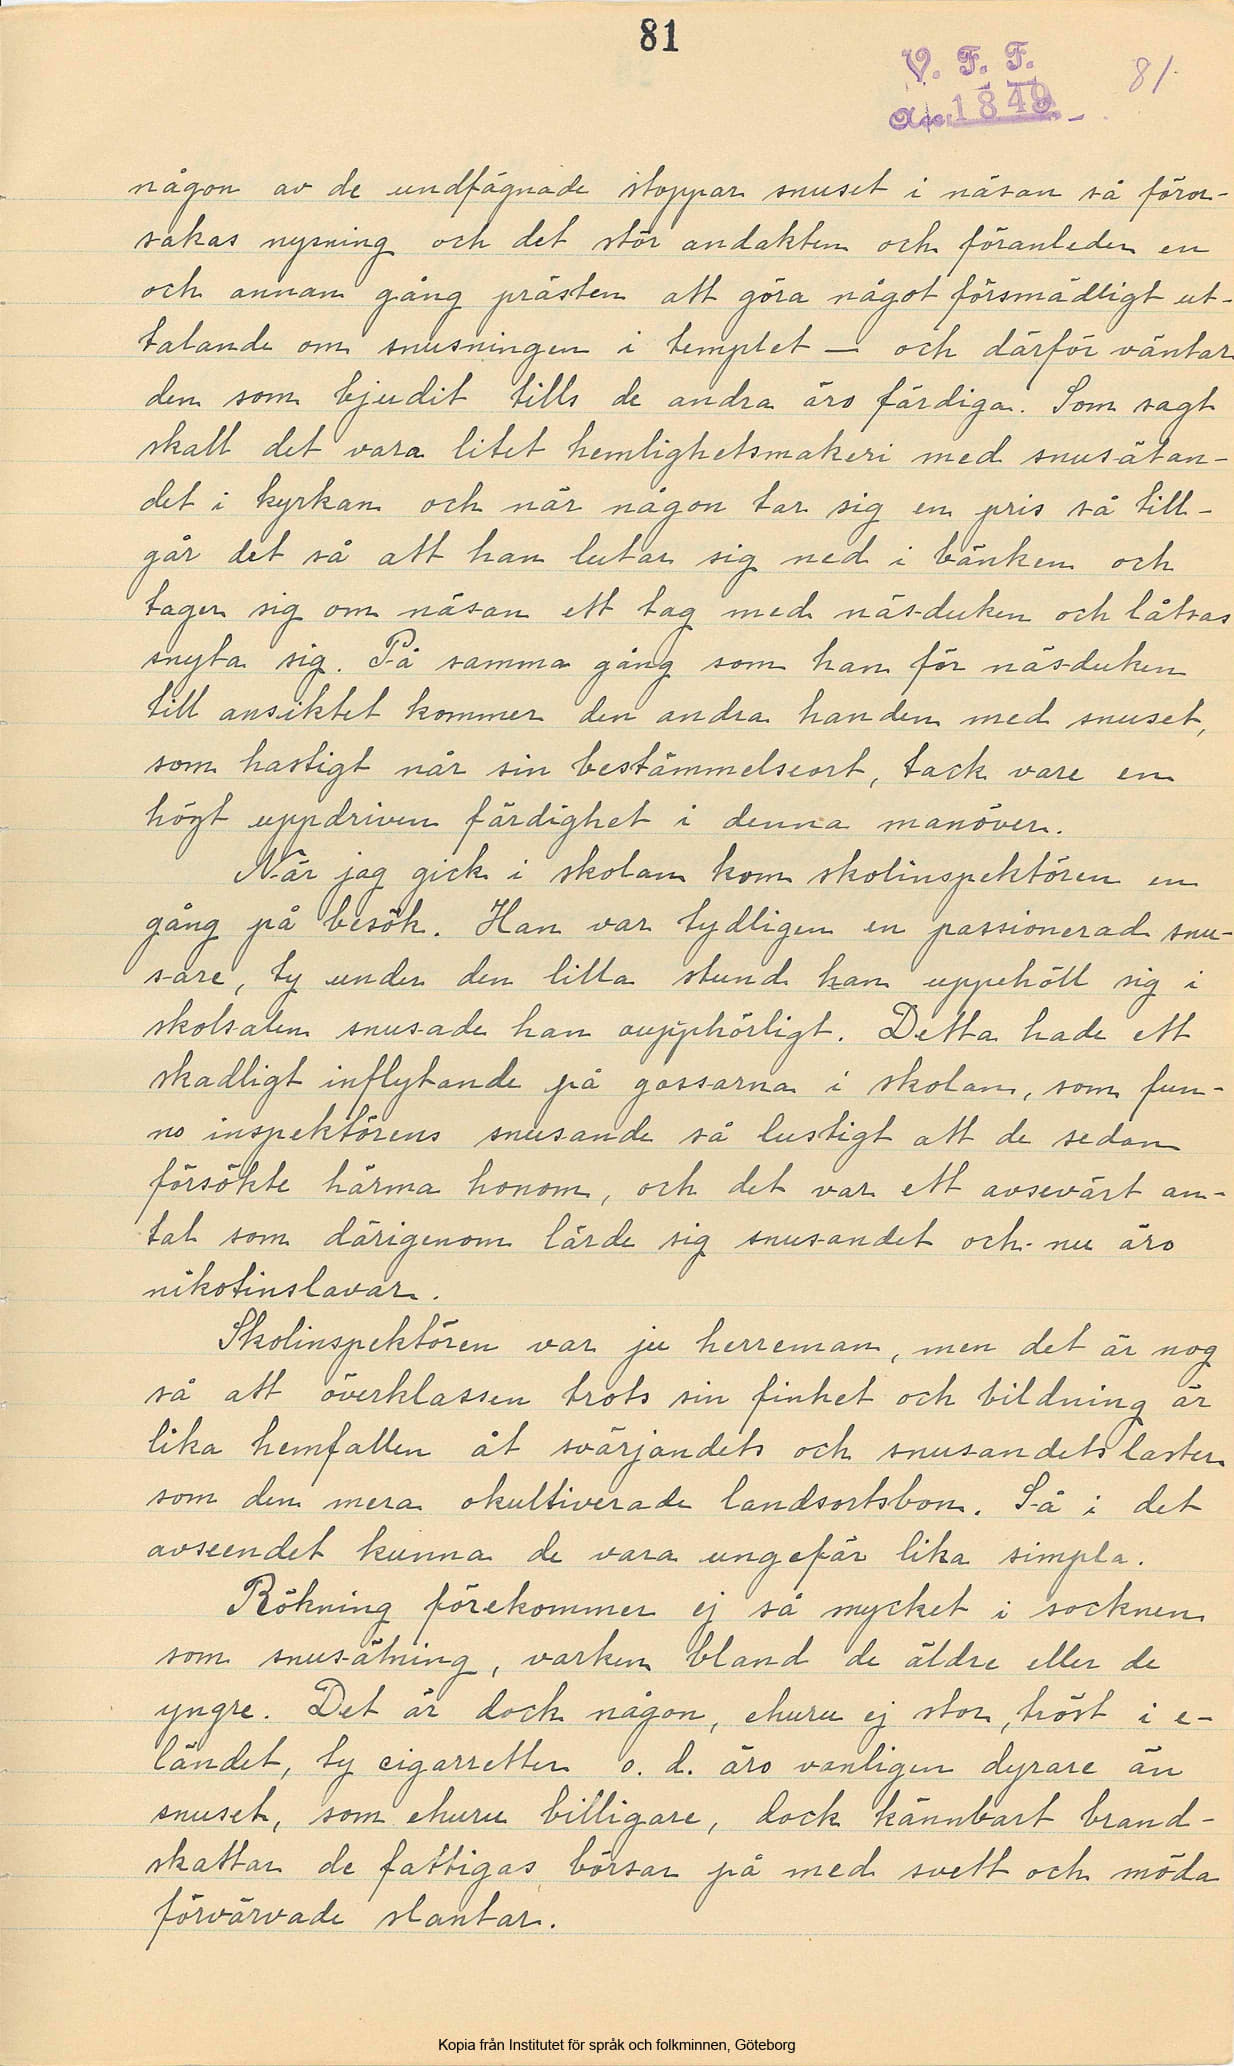 81
V. F. F.
Acc. 1849.
81.
någon av de undfägnade stoppar snuset i näsan så föror-
sakas nysning och det stör andakten och föranleder en
och annan gång prästen att göra något försmädligt ut-
talande om snusningen i templet — och därför väntar
den som bjudit tills de andra äro färdiga. Som sagt
skall det vara litet hemlighetsmakeri med snusätan-
det i kyrkan och när någon tar sig en pris så till-
går det så att han lutar sig ned i bänken och
tager sig om näsan ett tag med näsduken och låtsas
snyta sig. På samma gång som han för näsduken
till ansiktet kommer den andra handen med snuset,
som hastigt når sin bestämmelseort, tack vare en
högt uppdriven färdighet i denna manöver.
När jag gick i skolan kom skolinspektören en
gång på besök. Han var tydligen en passionerad snu-
sare, ty under den lilla stund han uppehöll sig i
skolsalen snusade han oupphörligt. Detta hade ett
skadligt inflytande på gossarna i skolan, som fun-
no inspektörens snusande så lustigt att de sedan
försökte härma honom, och det var ett avsevärt an-
tal som därigenom lärde sig snusandet och nu äro
nikotinslavar.
Skolinspektören var ju herreman, men det är nog
så att överklassen trots sin finhet och bildning är
lika hemfallen åt svärjandets och snusandets laster
som den mera okultiverade landsortsbon. Så i det
avseendet kunna de vara ungefär lika simpla.
Rökning förekommer ej så mycket i socknen
som snusätning, varken bland de äldre eller de
yngre. Det är dock någon, ehuru ej stor, tröst i e-
ländet, ty cigarretter o. d. äro vanligen dyrare än
snuset, som ehuru billigare, dock kännbart brand-
skattar de fattigas börsar på med svett och möda
förvärvade slantar.
Kopia från Institutet för språk och folkminnen, Göteborg